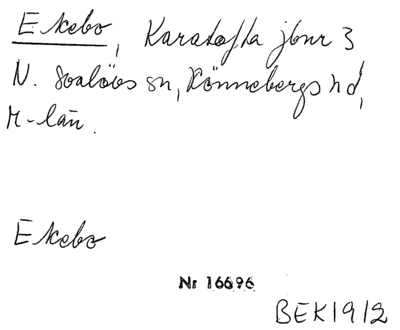 Ekebo, Karatofta jbnr 3
N. Svalövs sn, Rönnebergs hd,
M-län.
Ekebo
Nr 16696
BEK1912